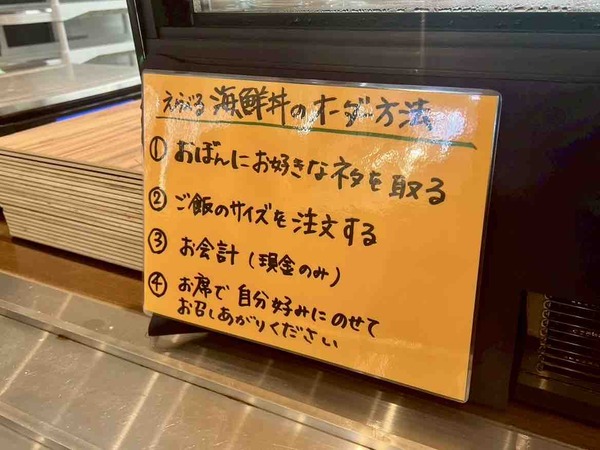 えらべる海鮮丼のオーダー方法
① おぼんにお好きなネタを取る
② ご飯のサイズを注文する
③ お会計(現金のみ)
④ お席で自分好みにのせて
お召しあがりください